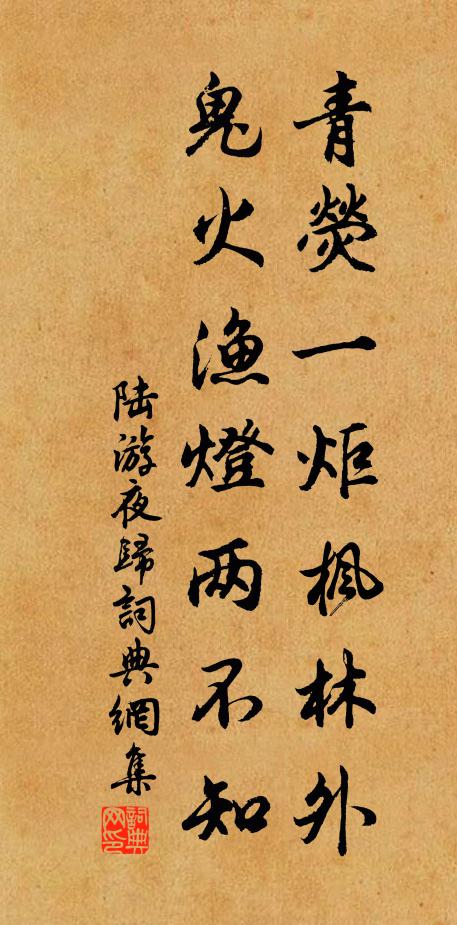 青熒一炬楓林外
鬼火漁燈两不知
陆游夜歸詞典網集
詞典网印